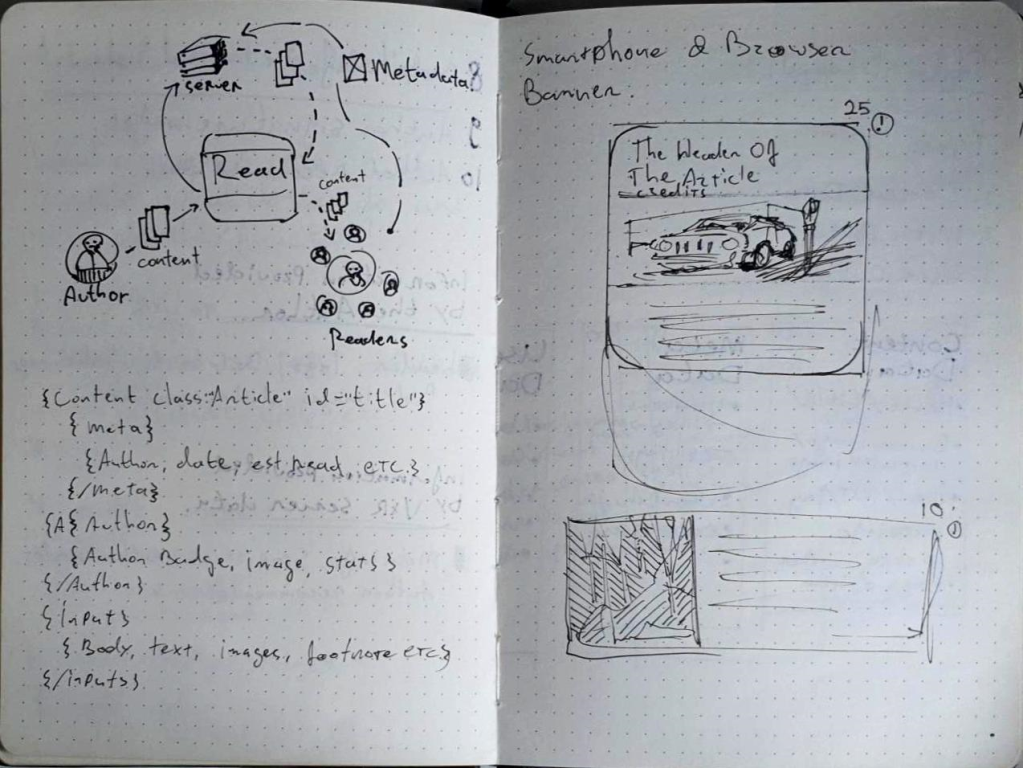 server
Metadata
Read
content
content
Author
Readers
{Content class:"Article" id="title"}
{meta}
{Author, date, est read, etc.}
{/meta}
{A{Author}
{Author Badge, image, stats}
{/Author}
{Input}
{Body, text, images, footnote etc}
{/inputs}
Smartphone & Browser
Banner.
25.
!
The Header Of
The Article
credits
10.
!